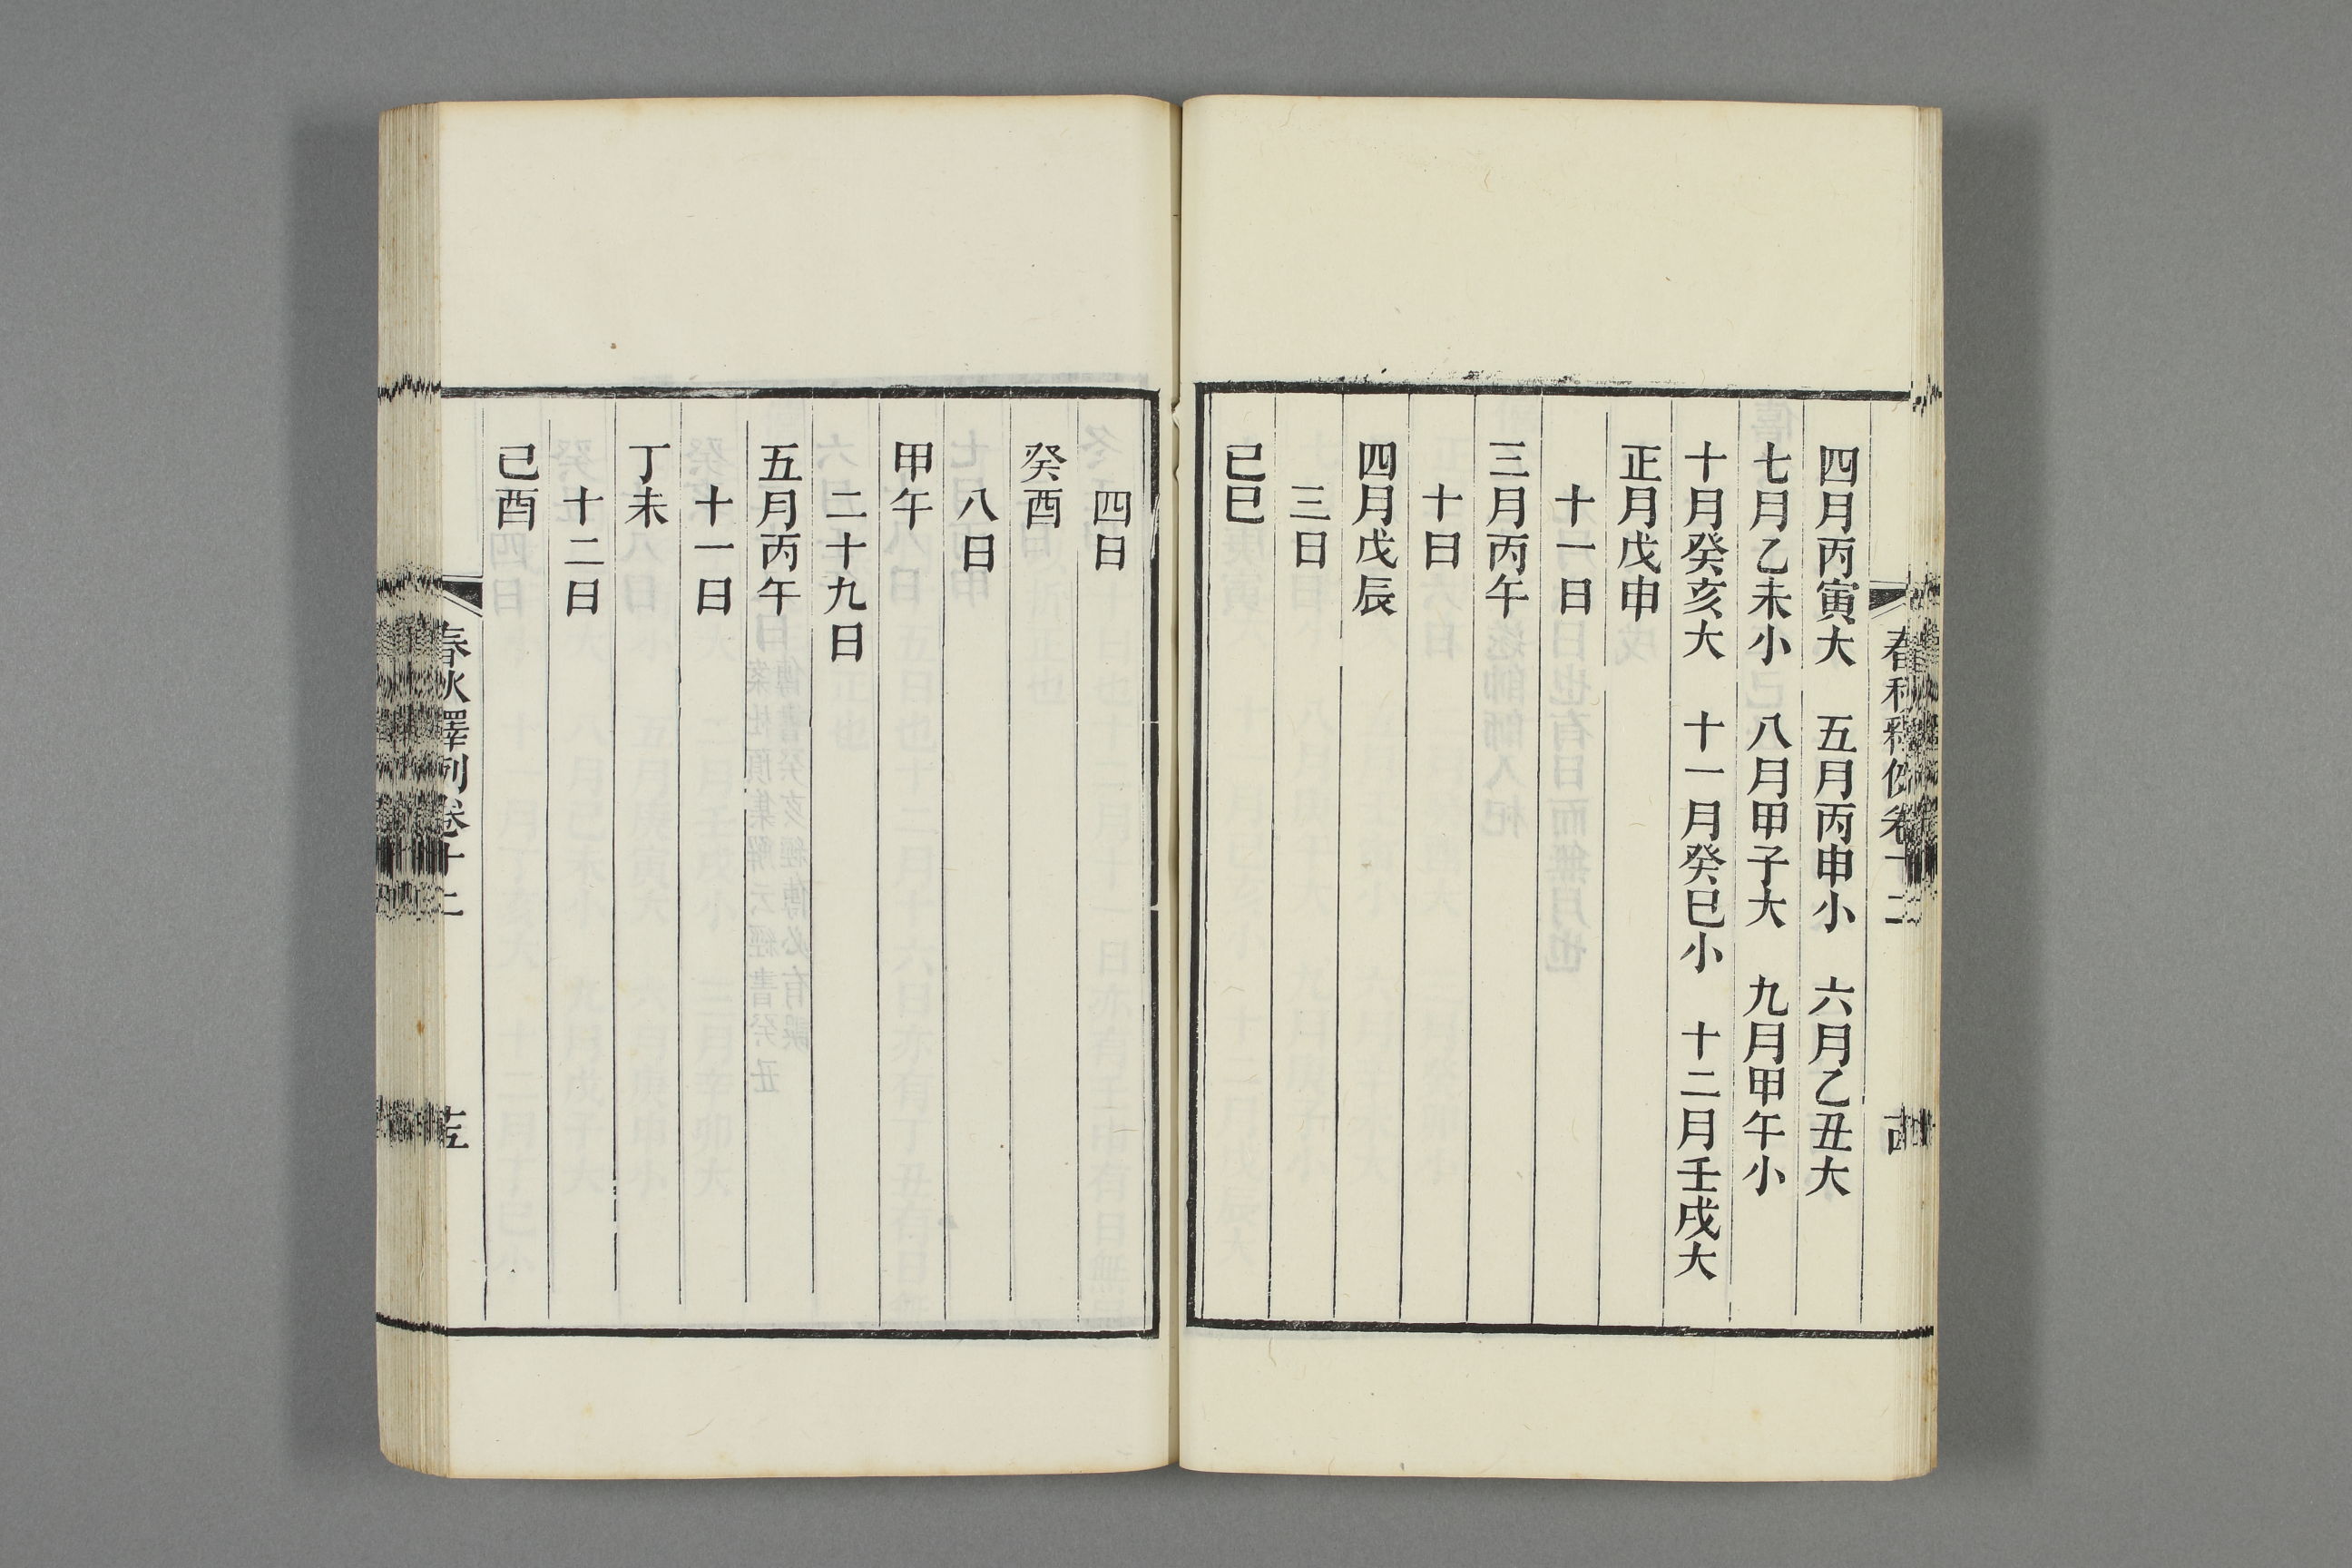 四月丙寅大　五月丙申小　六月乙丑大
七月乙未小　八月甲子大　九月甲午小
十月癸亥大　十一月癸巳小　十二月壬戌大
正月戊申
十一日
三月丙午
十日
四月戊辰
三日
己巳
四日
癸酉
八日
甲午
二十九日
五月丙午
十一日
丁未
十二日
己酉
春秋釋例卷十二